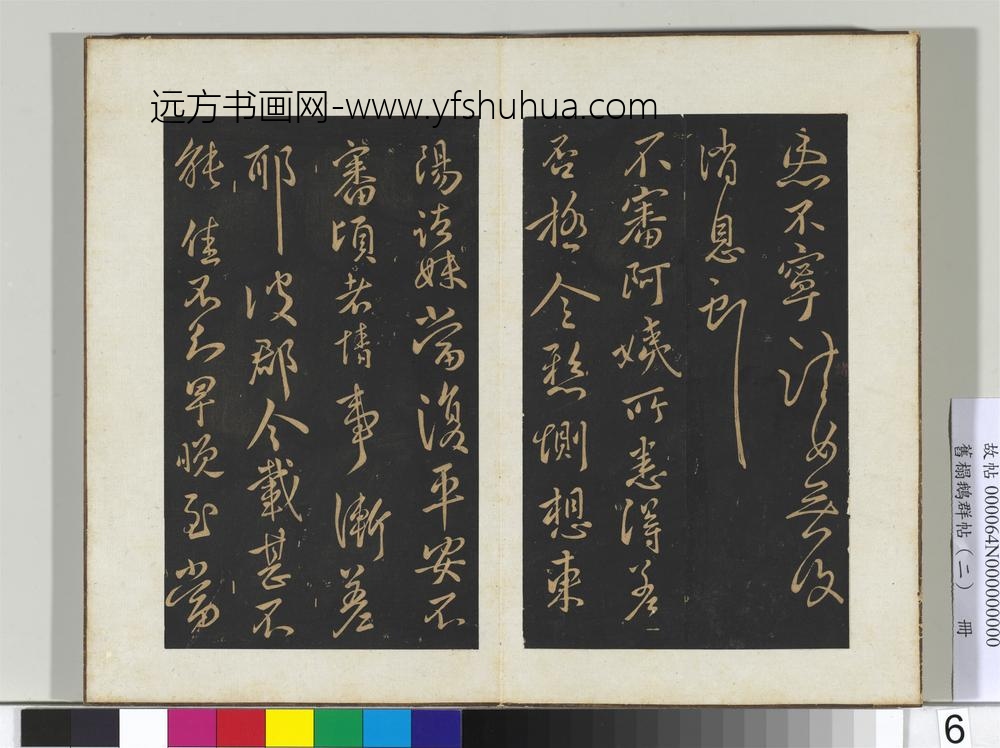 远方书画网-www.yfshuhua.com
不寧女無復
消息
不審阿姨所患得差
否極令懸惻想東
陽諸妹當復平安不
審頃者情事漸差
耶彼郡今載甚不
能佳不知早晚至當
故帖 000064N000000000
舊榻鵝群帖(二) 冊
6